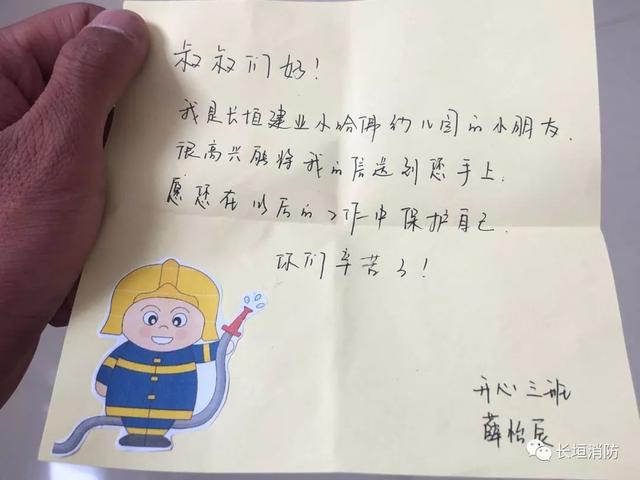 叔叔们好！
我是长垣建业小哈佛幼儿园的小朋友.
很高兴能将我的信送到您手上.
愿您在以后的工作中保护自己.
你们辛苦了！
开心三班
薛怡辰
长垣消防